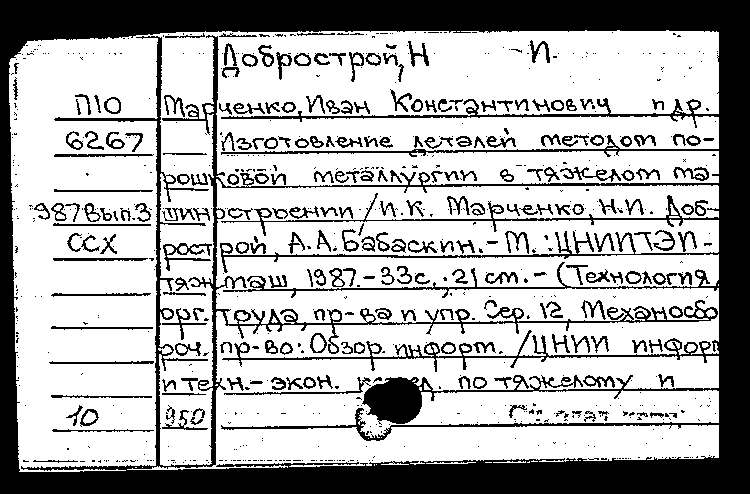 Добрострой, Н И.
П10 Марченко, Иван Константинович и др.
6267 Изготовление деталей методом по-
рошковой металлургии в тяжелом ма-
987 Вып.3 шиностроении / И.К. Марченко, Н.И. Доб-
ССХ рострой, А.А. Бабаскин. - М. : ЦНИИТЭИ-
тяжмаш, 1987. - 33 с. ; 21 см. - (Технология,
орг. труда, пр-ва и упр. Сер. 12, Механосбо
роч. пр-во: Обзор. информ. / ЦНИИ информ
и техн.-экон. по тяжелому и
10 950